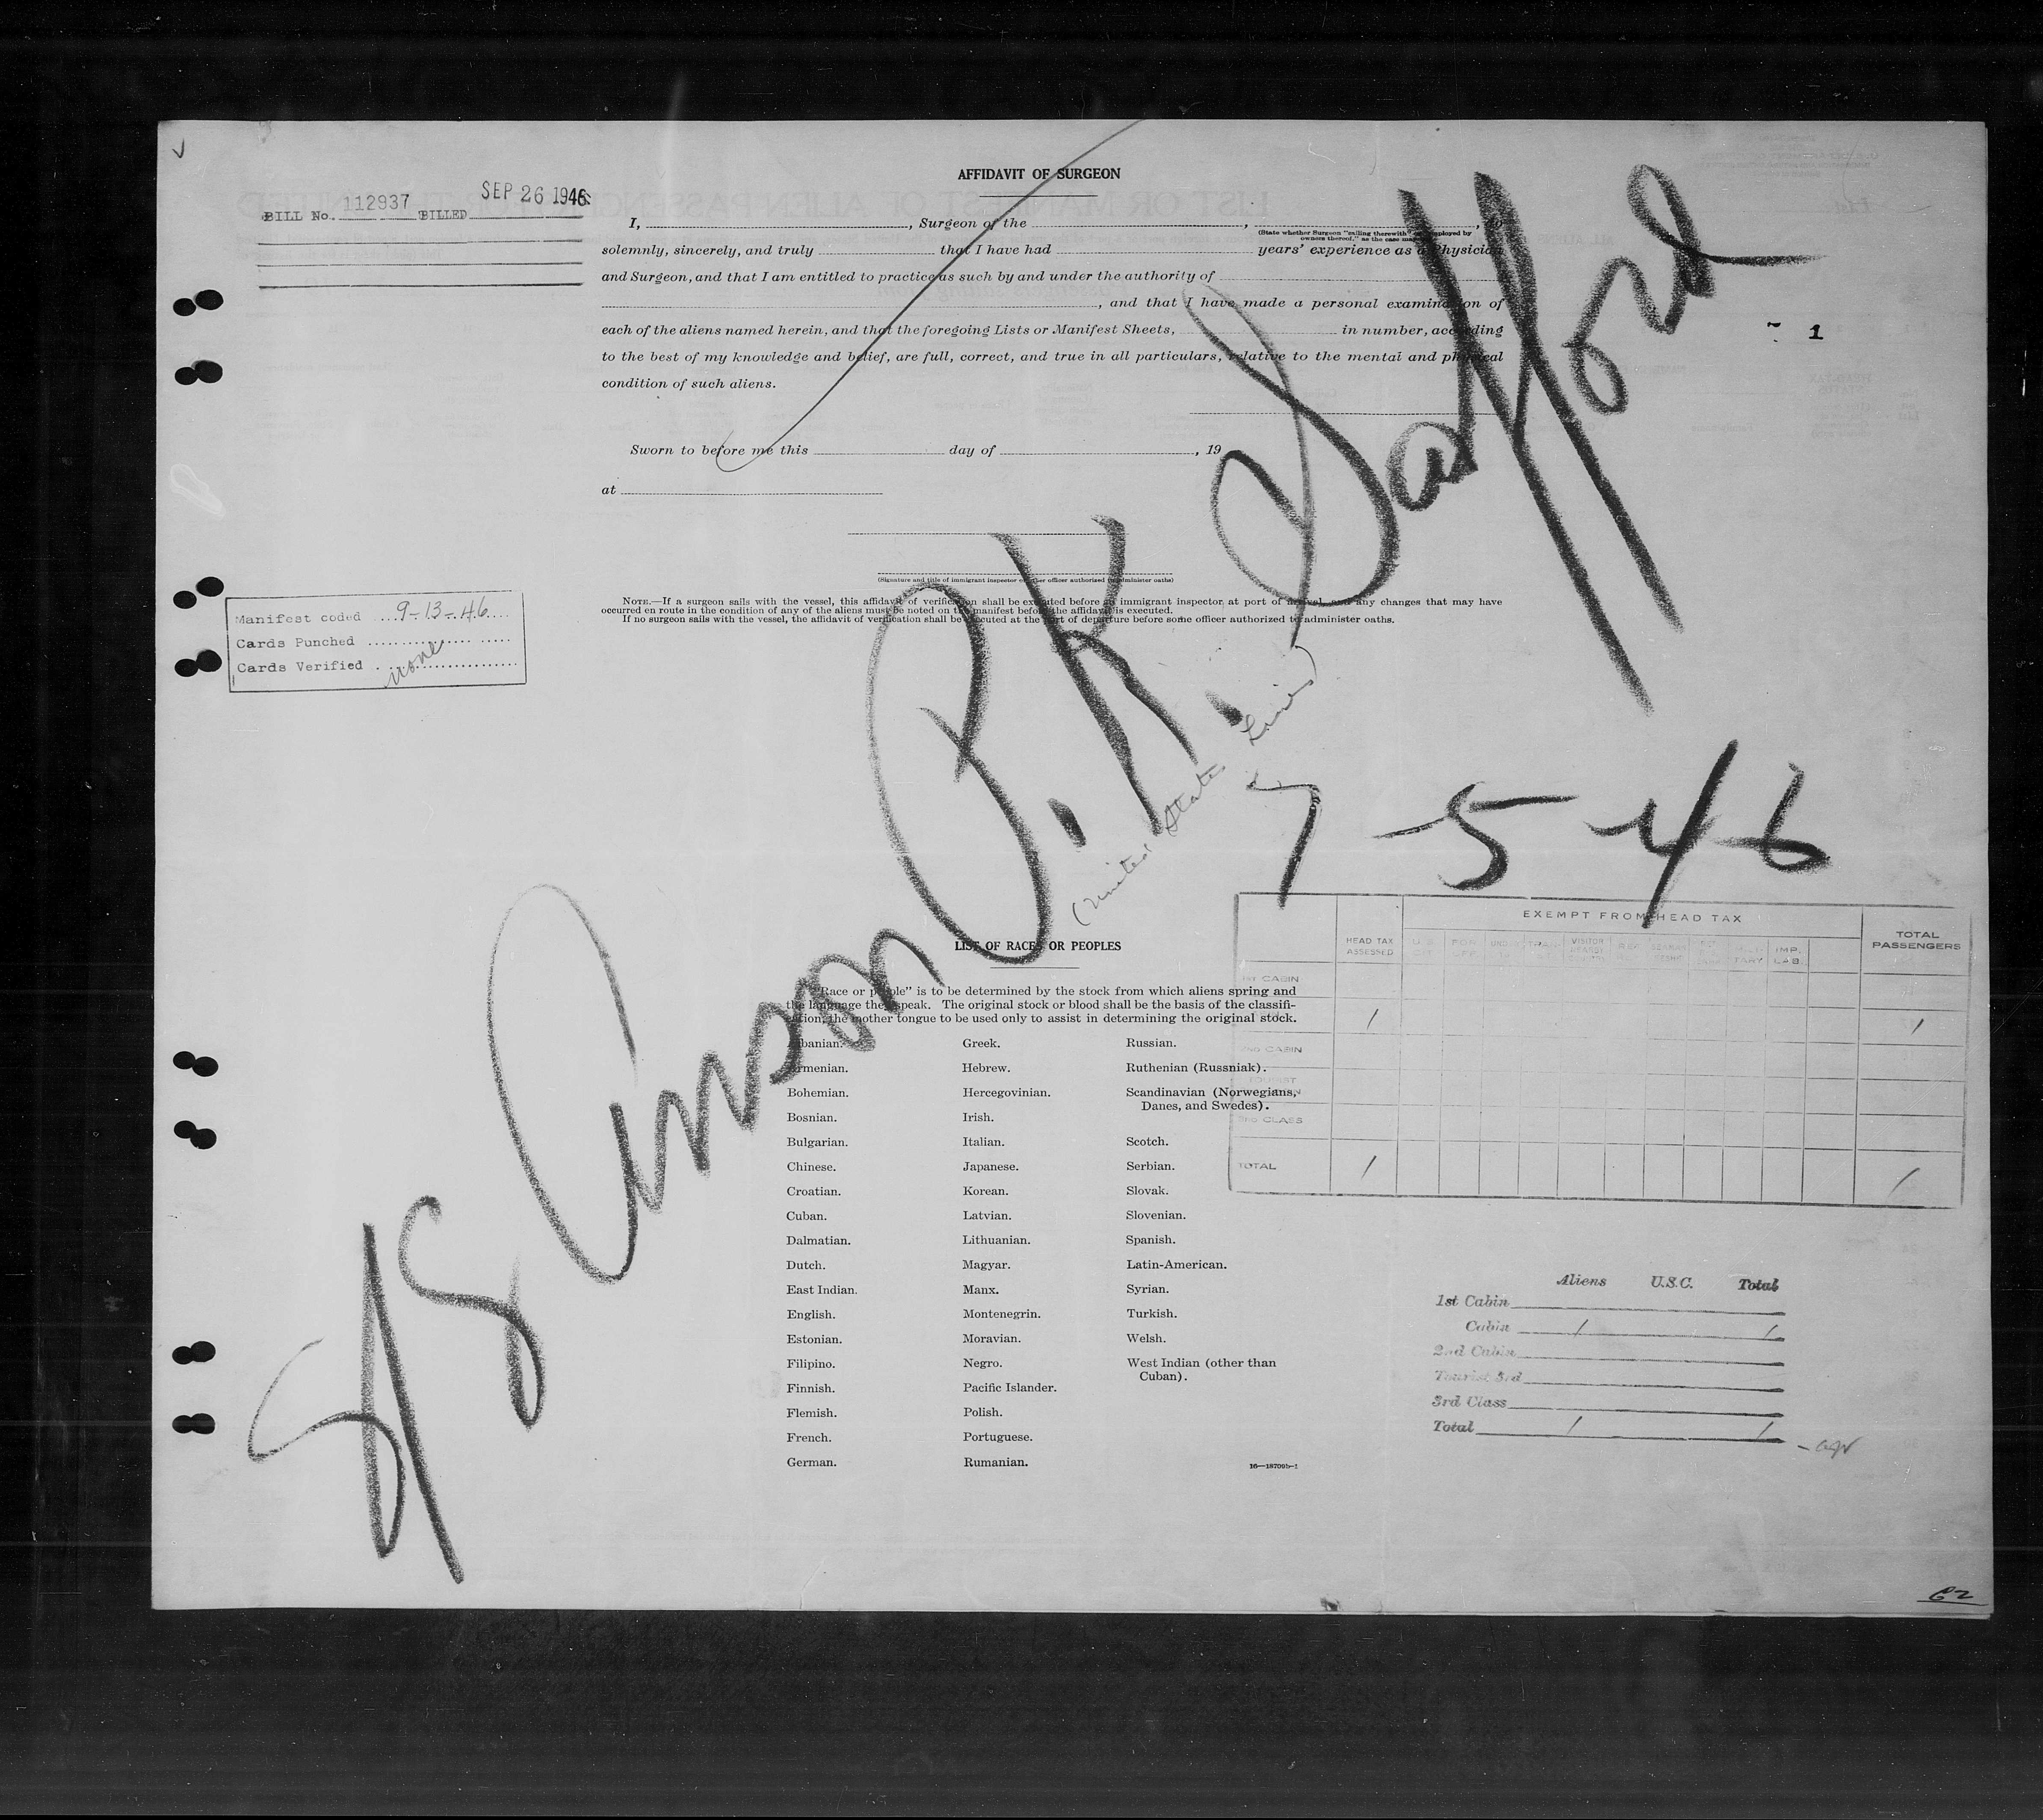 AFFIDAVIT OF SURGEON
BILL No. 112937 BILLED SEP 26 1946
I, , Surgeon of the , , do
(State whether Surgeon "sailing therewith" or employed by
owners thereof," as the case may be)
solemnly, sincerely, and truly that I have had years' experience as a Physician
and Surgeon, and that I am entitled to practice as such by and under the authority of
, and that I have made a personal examination of
each of the aliens named herein, and that the foregoing Lists or Manifest Sheets, in number, according
to the best of my knowledge and belief, are full, correct, and true in all particulars, relative to the mental and physical
condition of such aliens.
- 1
Sworn to before me this day of , 19
at
(Signature and title of immigrant inspector or other officer authorized to administer oaths)
NOTE.—If a surgeon sails with the vessel, this affidavit of verification shall be executed before an immigrant inspector at port of arrival, and any changes that may have
occurred en route in the condition of any of the aliens must be noted on the manifest before the affidavit is executed.
If no surgeon sails with the vessel, the affidavit of verification shall be executed at the port of departure before some officer authorized to administer oaths.
Manifest coded 9-13-46
Cards Punched
Cards Verified none
S/S Anson P.K. Safford
(United States Lines)
7-5-46
LIST OF RACES OR PEOPLES
"Race or people" is to be determined by the stock from which aliens spring and
the language they speak. The original stock or blood shall be the basis of the classifi-
cation, the mother tongue to be used only to assist in determining the original stock.
Albanian.
Armenian.
Bohemian.
Bosnian.
Bulgarian.
Chinese.
Croatian.
Cuban.
Dalmatian.
Dutch.
East Indian.
English.
Estonian.
Filipino.
Finnish.
Flemish.
French.
German.
Greek.
Hebrew.
Hercegovinian.
Irish.
Italian.
Japanese.
Korean.
Latvian.
Lithuanian.
Magyar.
Manx.
Montenegrin.
Moravian.
Negro.
Pacific Islander.
Polish.
Portuguese.
Rumanian.
Russian.
Ruthenian (Russniak).
Scandinavian (Norwegians,
Danes, and Swedes).
Scotch.
Serbian.
Slovak.
Slovenian.
Spanish.
Latin-American.
Syrian.
Turkish.
Welsh.
West Indian (other than
Cuban).
16—18709b-1
EXEMPT FROM HEAD TAX
HEAD TAX
ASSESSED
IMP.
LAB.
TOTAL
PASSENGERS
1ST CABIN
1 1
2ND CABIN
TOURIST
3RD CLASS
TOTAL 1 1
Aliens U.S.C. Total
1st Cabin
Cabin 1 1
2nd Cabin
Tourist 3rd
3rd Class
Total 1 1
62